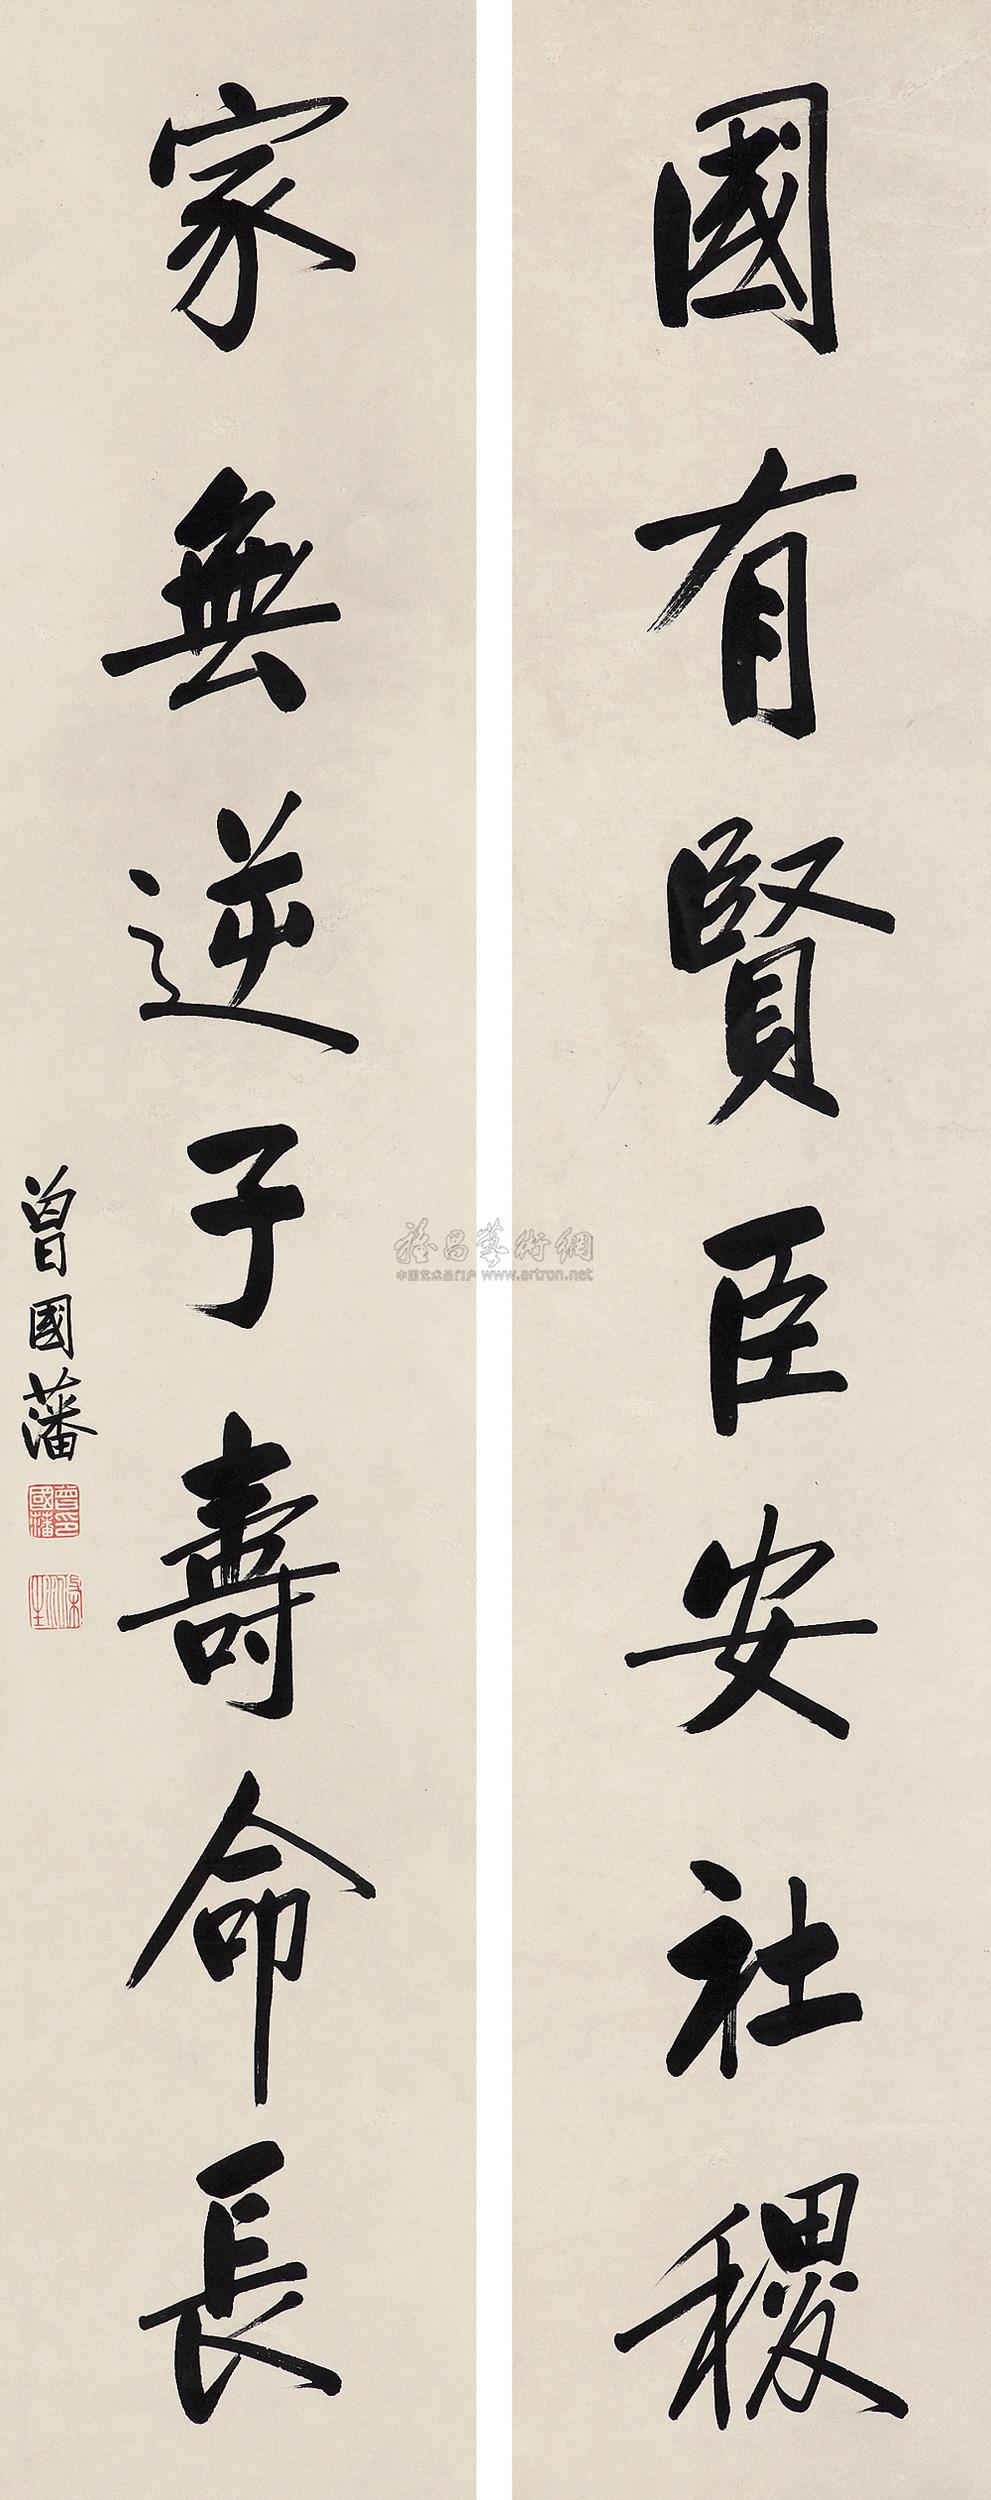 國有賢臣安社稷
家無逆子壽命長
曾國藩
雅昌藝術網
中国艺术品门户 www.artron.net